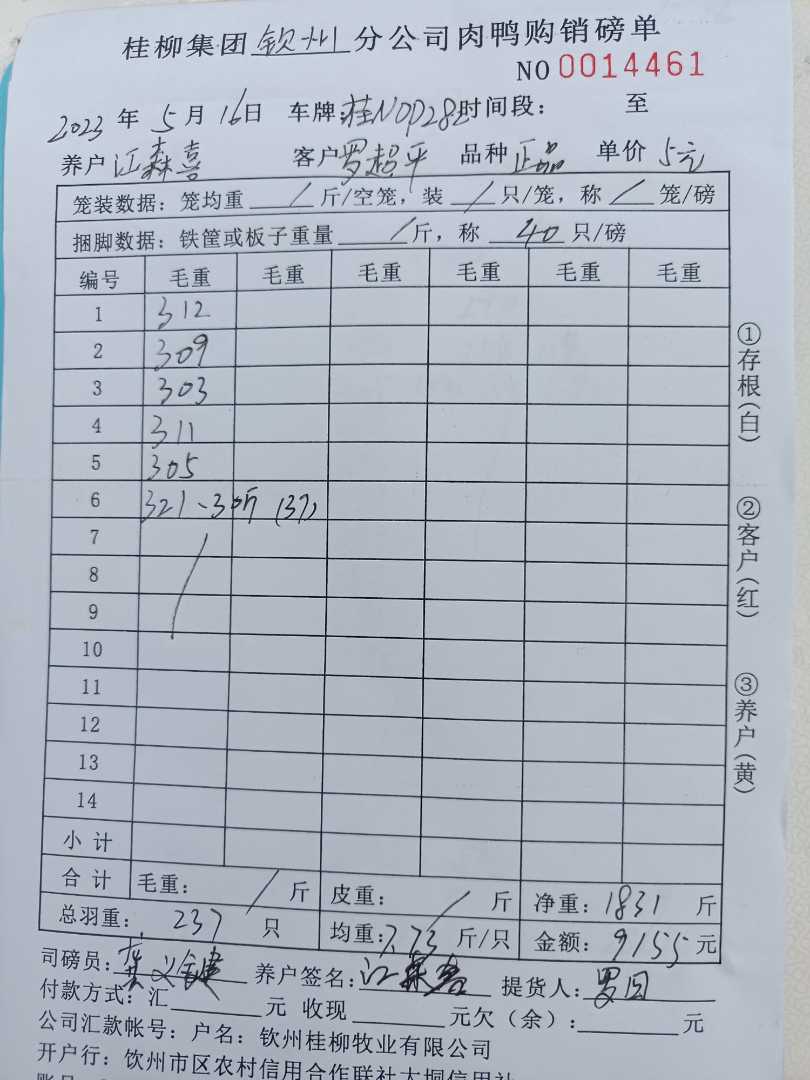 桂柳集团钦州分公司肉鸭购销磅单
NO 0014461
2023年5月16日 车牌:桂N0P282时间段: 至
养户江森喜 客户罗超平 品种正品 单价5元
笼装数据:笼均重/斤/空笼,装/只/笼,称/笼/磅
捆脚数据:铁筐或板子重量/斤,称40只/磅
编号 毛重 毛重 毛重 毛重 毛重 毛重
1 312
2 309
3 303
4 311
5 305
6 321-30斤 (37)
7
8
9
10
11
12
13
14
小计
合计 毛重:/斤 皮重:/斤 净重:1831斤
总羽重:237只 均重:7.73斤/只 金额:9155元
司磅员: 养户签名:江森喜 提货人:
付款方式:汇 元 收现 元欠(余): 元
公司汇款帐号:户名:钦州桂柳牧业有限公司
开户行:钦州市区农村信用合作联社大垌信用社
①存根(白)
②客户(红)
③养户(黄)